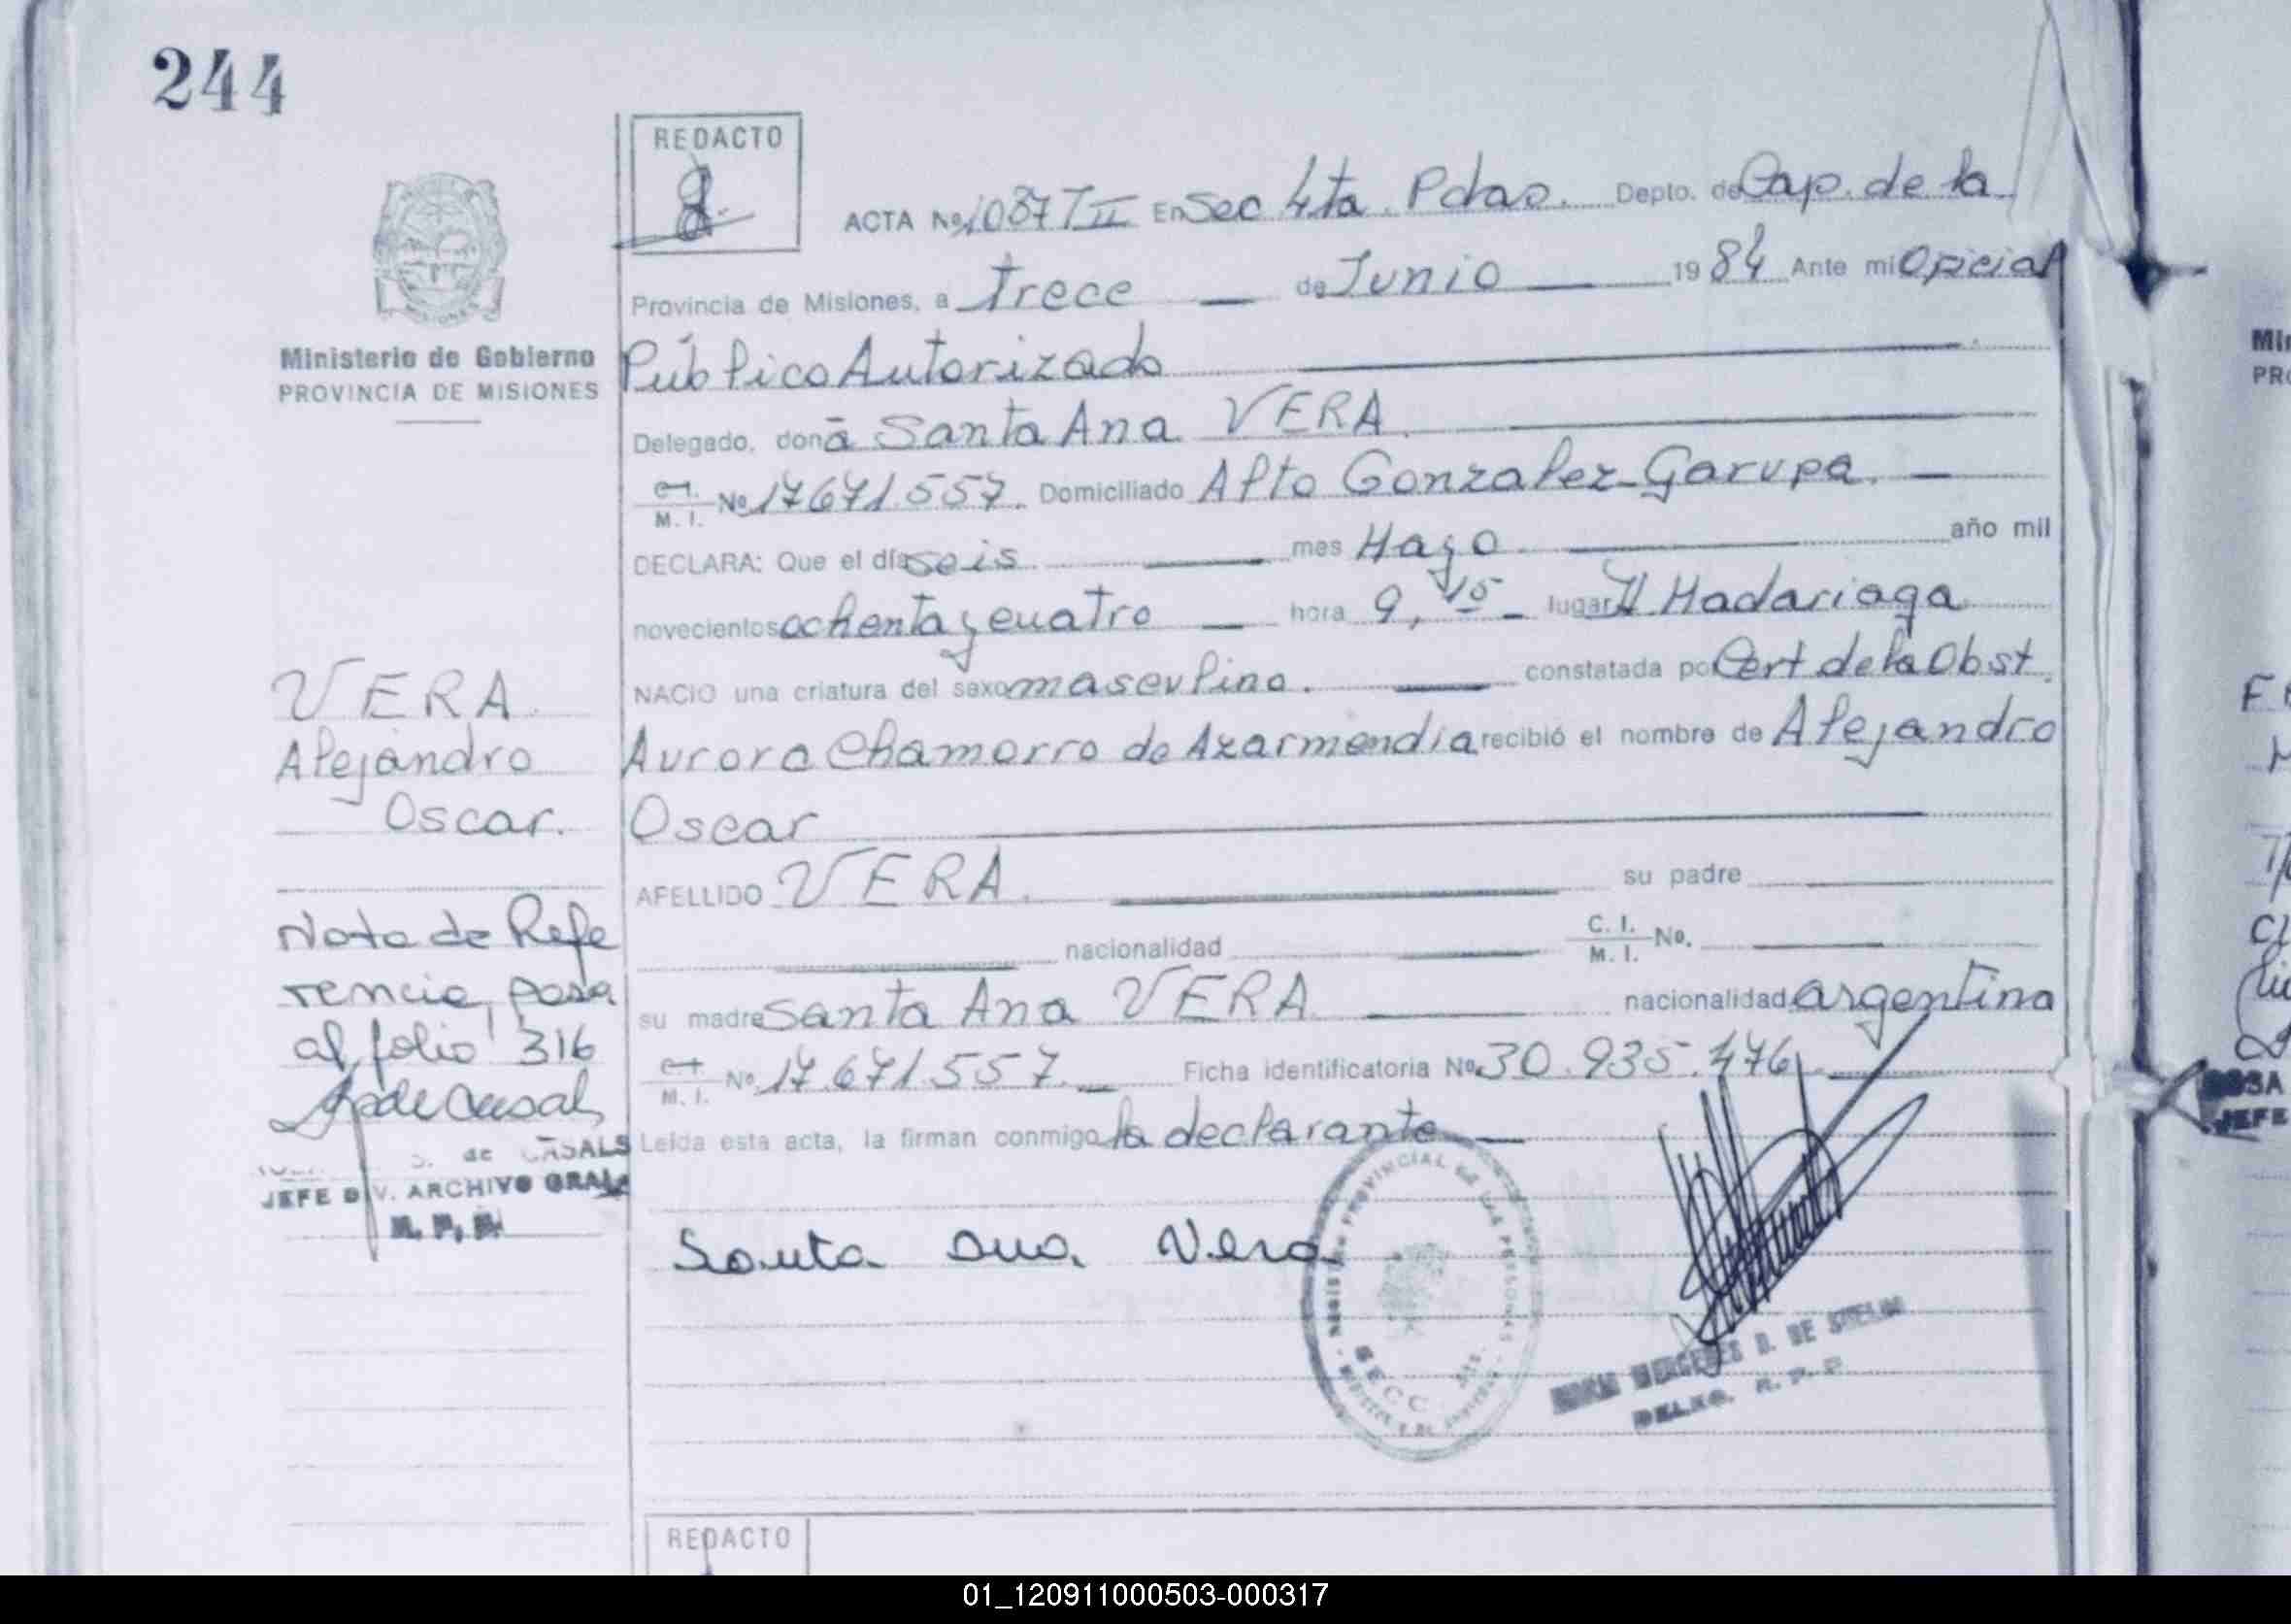 244
REDACTO
ACTA Nº 1087 T II En Sec 4ta. Pdas. Depto. de Cap. de la
Provincia de Misiones, a trece de Junio 1984 Ante mi Oficial
Ministerio de Gobierno
PROVINCIA DE MISIONES
Público Autorizado
Delegado, doña Santa Ana VERA
C.I. M. I. Nº 17671.557. Domiciliado Alto Gonzalez-Garupa.
DECLARA: Que el día seis mes Mayo año mil
novecientos ochenta y cuatro hora 9,15 lugar H Madariaga
NACIO una criatura del sexo masculino. constatada por Cert de la Obst.
Aurora Chamorro de Azarmendia recibió el nombre de Alejandro
Oscar
APELLIDO VERA. su padre
nacionalidad C. I. M. I. No.
su madre Santa Ana VERA nacionalidad argentina
M. I. Nº 17.671.557. Ficha identificatoria Nº 30.935.476
Leída esta acta, la firman conmigo la declarante
VERA
Alejandro
Oscar.
Nota de Refe
rencia, pasa
al folio 316
S. de CASALS
JEFE DIV. ARCHIVO GRAL
Santa Ana Vera
PROVINCIAL DE LAS PERSONAS
SECC.
MERCEDES D. DE
R. P. P.
REDACTO
01_120911000503-000317